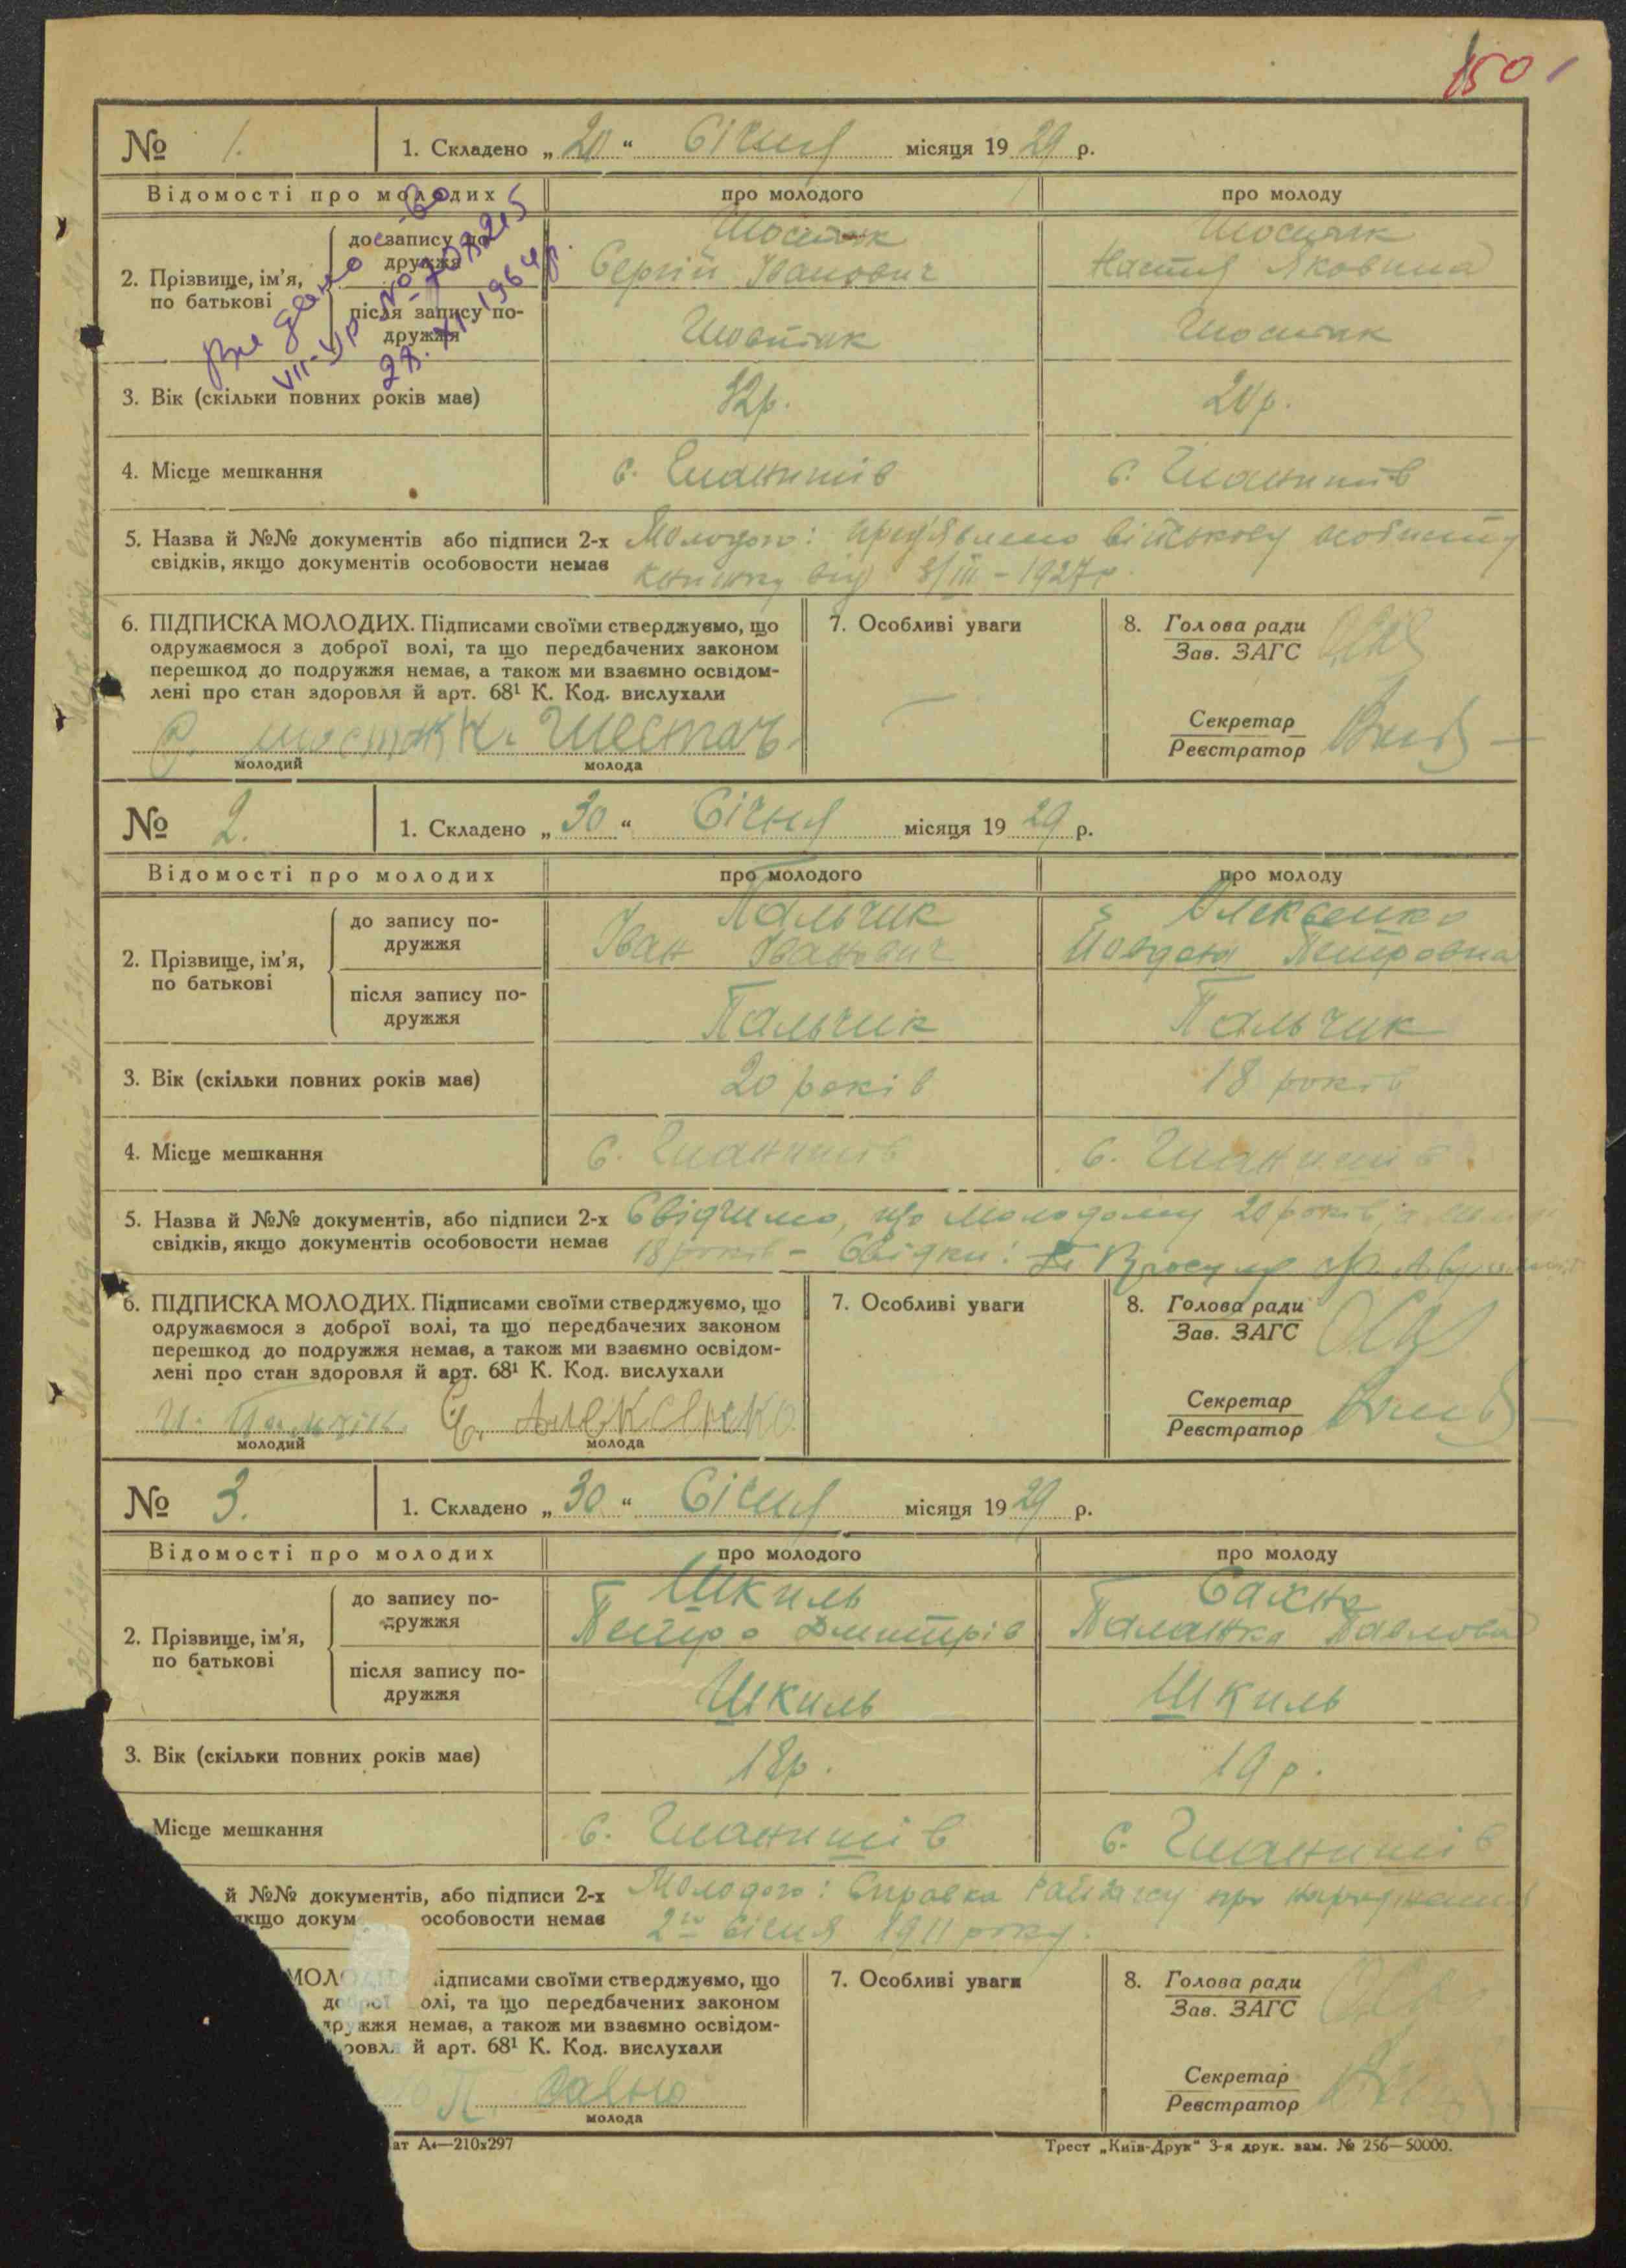 150
№ 1. 1. Складено „20“ Січня місяця 1929 р.
Відомості про молодих про молодого про молоду
2. Прізвище, ім'я, по батькові
до запису подружжя
Шостак Шостак
Сергій Іванович Настя Яковина
після запису подружжя
Шостак Шостак
VII-УР № 708215
28. XI 1964р.
3. Вік (скільки повних років має) 32р. 20р.
4. Місце мешкання с. Гнатиків с.
5. Назва й №№ документів або підписи 2-х Молодого: пред'явлено військову
свідків, якщо документів особовости немає книжку від 8/III – 1927р.
6. ПІДПИСКА МОЛОДИХ. Підписами своїми стверджуємо, що 7. Особливі уваги 8. Голова ради
одружаємося з доброї волі, та що передбачених законом Зав. ЗАГС
перешкод до подружжя немає, а також ми взаємно освідом-
лені про стан здоровля й арт. 68¹ К. Код. вислухали
Секретар
шостак Н. Шестач Реєстратор
молодий молода
№ 2. 1. Складено „30“ Січня місяця 1929 р.
Відомості про молодих про молодого про молоду
2. Прізвище, ім'я, по батькові
до запису подружжя
Пальчик Олексенко
Іван Іванович Йовдоха Петровна
після запису подружжя
Пальчик Пальчик
3. Вік (скільки повних років має) 20 років 18 років
4. Місце мешкання с. с.
5. Назва й №№ документів, або підписи 2-х Свідчимо, що молодому 20 років, а
свідків, якщо документів особовости немає 18 років – Свідки:
6. ПІДПИСКА МОЛОДИХ. Підписами своїми стверджуємо, що 7. Особливі уваги 8. Голова ради
одружаємося з доброї волі, та що передбачених законом Зав. ЗАГС
перешкод до подружжя немає, а також ми взаємно освідом-
лені про стан здоровля й арт. 68¹ К. Код. вислухали
Секретар
И. Пальчик Є. Алексенко Реєстратор
молодий молода
№ 3. 1. Складено „30“ Січня місяця 1929 р.
Відомості про молодих про молодого про молоду
2. Прізвище, ім'я, по батькові
до запису подружжя
Шкиль Сахно
Петро Дмитрів Палажка Павловна
після запису подружжя
Шкиль Шкиль
3. Вік (скільки повних років має) 18р. 19р.
Місце мешкання с. с.
й №№ документів, або підписи 2-х Молодого: Справка Райзагсу про народження
якщо докум особовости немає 2го січня 1911 року.
МОЛОДИХ ідписами своїми стверджуємо, що 7. Особливі уваги 8. Голова ради
доброї олі, та що передбачених законом Зав. ЗАГС
дружжя немає, а також ми взаємно освідом-
ровля й арт. 68¹ К. Код. вислухали
Секретар
П. Сахно Реєстратор
молода
ат А4—210х297 Трест „Київ-Друк“ 3-я друк. зам. № 256—50000.